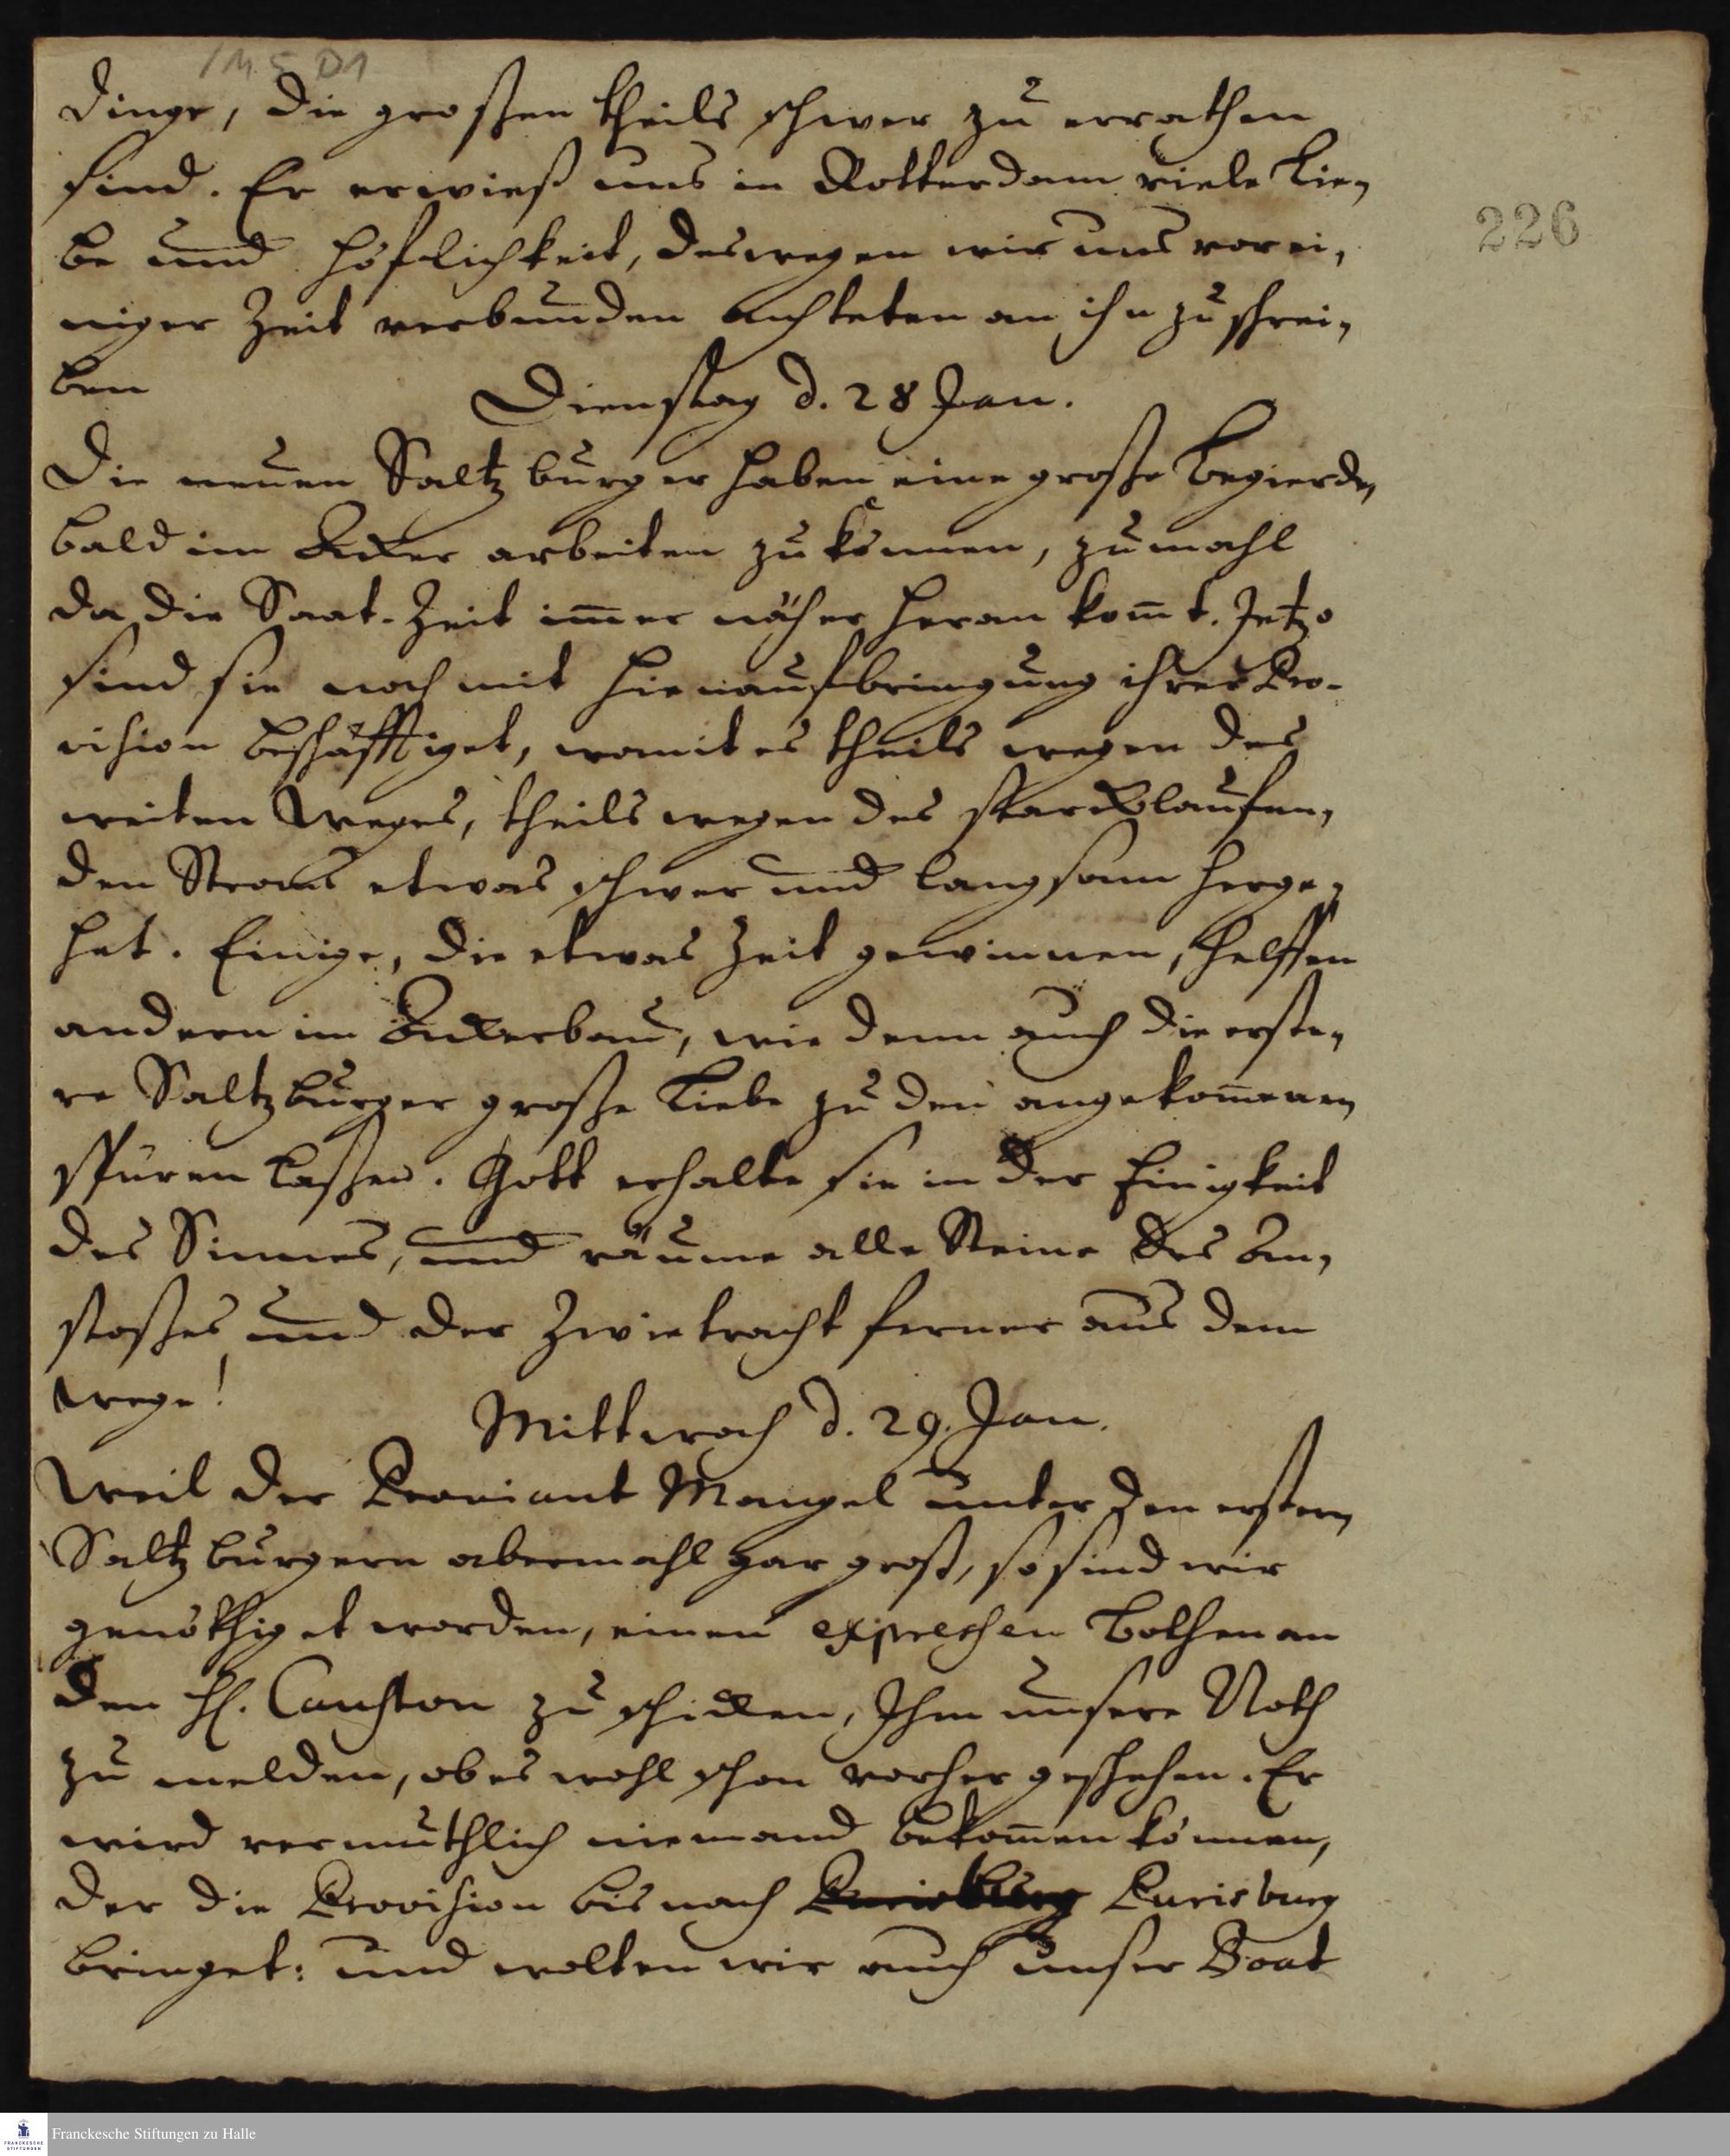 /M 5 D1
226
Dinge, die großen theils schwer zu errathen
sind. Er erwieß uns in Rotterdam viele Lie¬
be und Höflichkeit, deswegen wir uns vor ei¬
niger Zeit verbunden achteten an ihn zu schrei¬
ben
Dienstag d. 28 Jan.
Die neuen Saltzburger haben eine große Begierde,
bald im Acker arbeiten zu können, zumahl
da die Saat-Zeit im̄er näher heran kom̄t. Jetzo
sind sie noch mit Hienaufbringung ihrer Pro-
vision beschäfftiget, womit es theils wegen des
weiten Weges, theils wegen des starcklaufen¬
den Stroms etwas schwer und langsam herge¬
het. Einige, die etwas Zeit gewinnen, helffen
andern im Ackerbau, wie denn auch die erste¬
re Saltzburger große Liebe zu den angekom̄enen
spüren laßen. Gott erhalte sie in der Einigkeit
des Sinnes, und räume alle Steine des An¬
stoßes und der Zwietracht ferner aus dem
Wege!
Mittwoch d. 29. Jan.
Weil der Proviant Mangel unter den erstern
Saltzburgern abermahl gar groß, so sind wir
genöthiget worden, einen expressen Bothen an
den H. Causton zu schicken, Ihm unsere Noth
zu melden, ob es wohl schon vorher geschehen. Er
wird vermuthlich niemand bekom̄en können,
der die Provision bis nach Purisburg Purisburg
bringet: und wolten wir auch unser Boat
Franckesche Stiftungen zu Halle
FRANCKESCHE
STIFTUNGEN